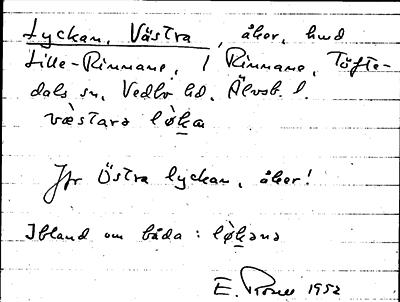 Lyckan, Västra, åker, hmd
Lille-Rinnane, 1 Rinnane, Töfte-
dals sn, Vedbo hd, Älvsb. l.
væstara løka
Jfr Östra lyckan, åker!
Ibland om båda: løkana
E. 1952